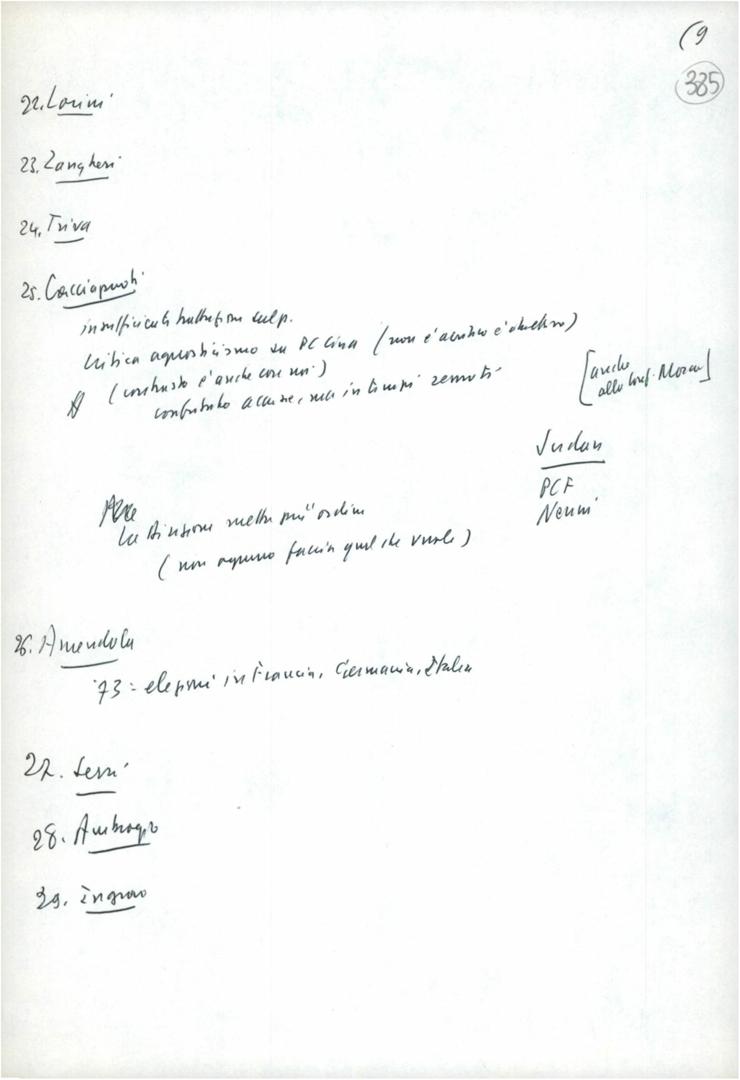 (9
385
22. Lorini
23. Zangheri
24. Triva
25. Cacciapuoti
insufficiente trattazione sul p.
critica agnosticismo su PC Cina (non è
(contrasto è anche con noi)
accuse, ma in tempi remoti
[anche
alla Conf. Mosca]
Sudan
PCF
Nenni
La Direzione mette più ordine
(non ognuno faccia quel che vuole)
26. Amendola
'73 = elezioni in Francia, Germania, Italia
27. Serri
28. Ambrogio
29. Ingrao